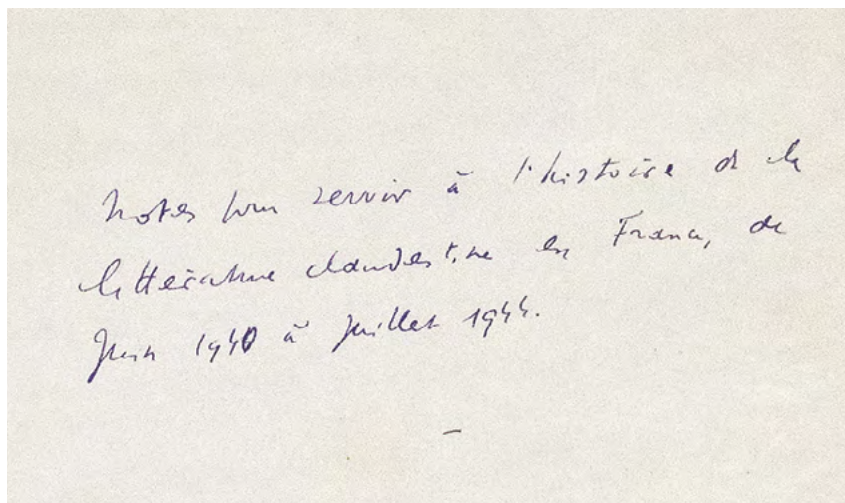 Notes pour servir à l'histoire de la
littérature clandestine en France, de
Juin 1940 à Juillet 1944.